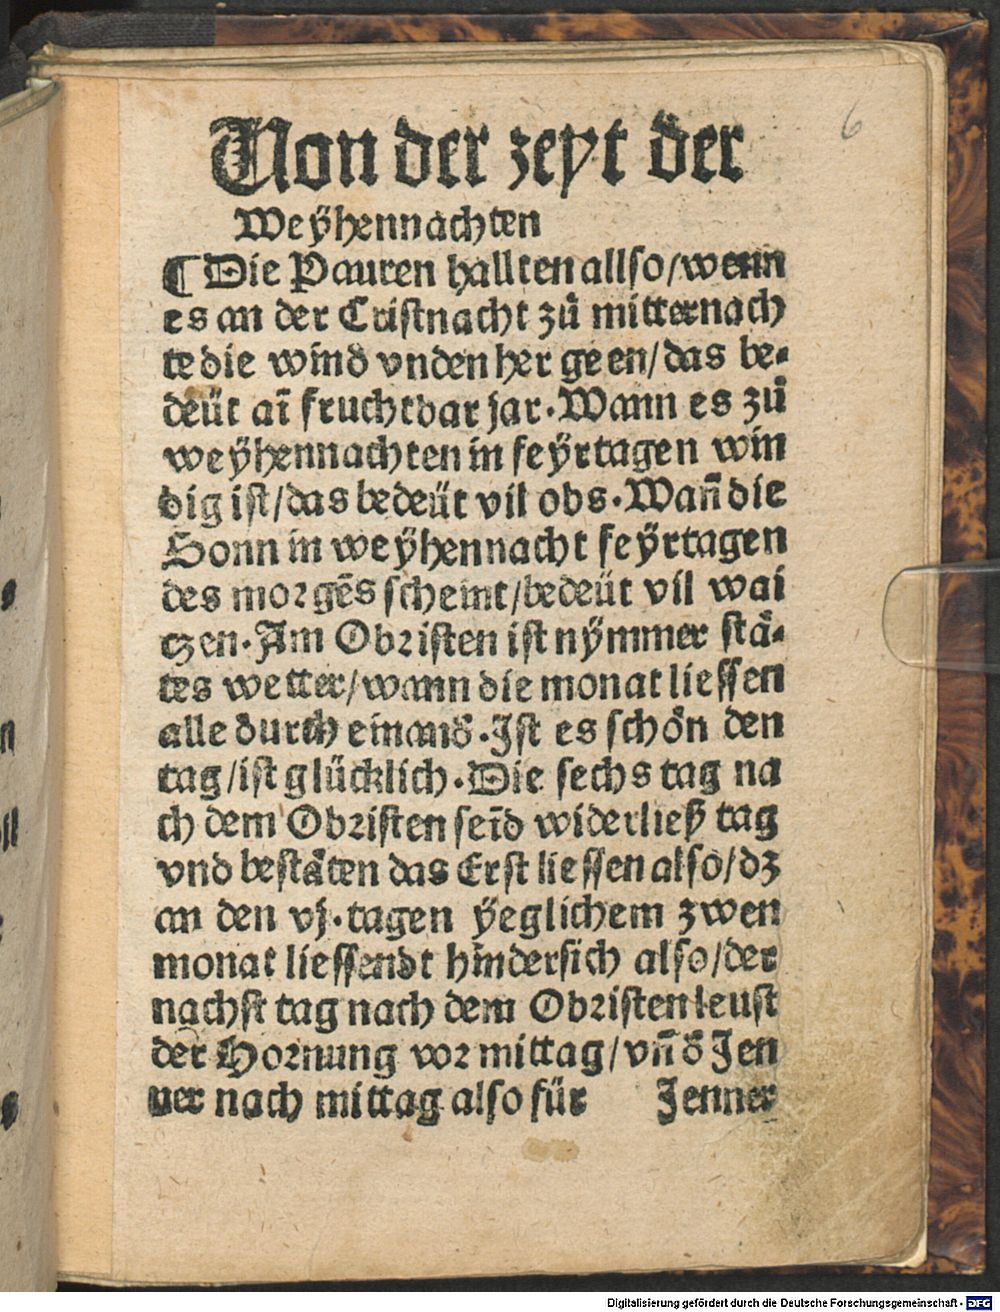 6
Von der zeyt der
Weÿhennachten
¶ Die Pauren hallten allso/wenn
es an der Cristnacht zů mitternach
te die wind vnden her geen/das be⸗
deüt aī fruchtbar jar. Wann es zů
weÿhennachten in feÿrtagen win
dig ist/das bedeüt vil obs. Wañ die
Sonn in weÿhennacht feÿrtagen
des morgēs scheint/bedeüt vil wai
tzen. Am Obristen ist nÿmmer stå⸗
tes wetter/wann die monat liessen
alle durch einand̄. Ist es schön den
tag/ist glücklich. Die sechs tag na
ch dem Obristen seīd widerließ tag
vnd beståten das Erst liessen also/dz
an den vj. tagen ÿeglichem zwen
monat liessendt hindersich also/der
nachst tag nach dem Obristen leust
der Hornung vor mittag/vñ d̄ Jen
ner nach mittag also für Jenner
Digitalisierung gefördert durch die Deutsche Forschungsgemeinschaft - DFG